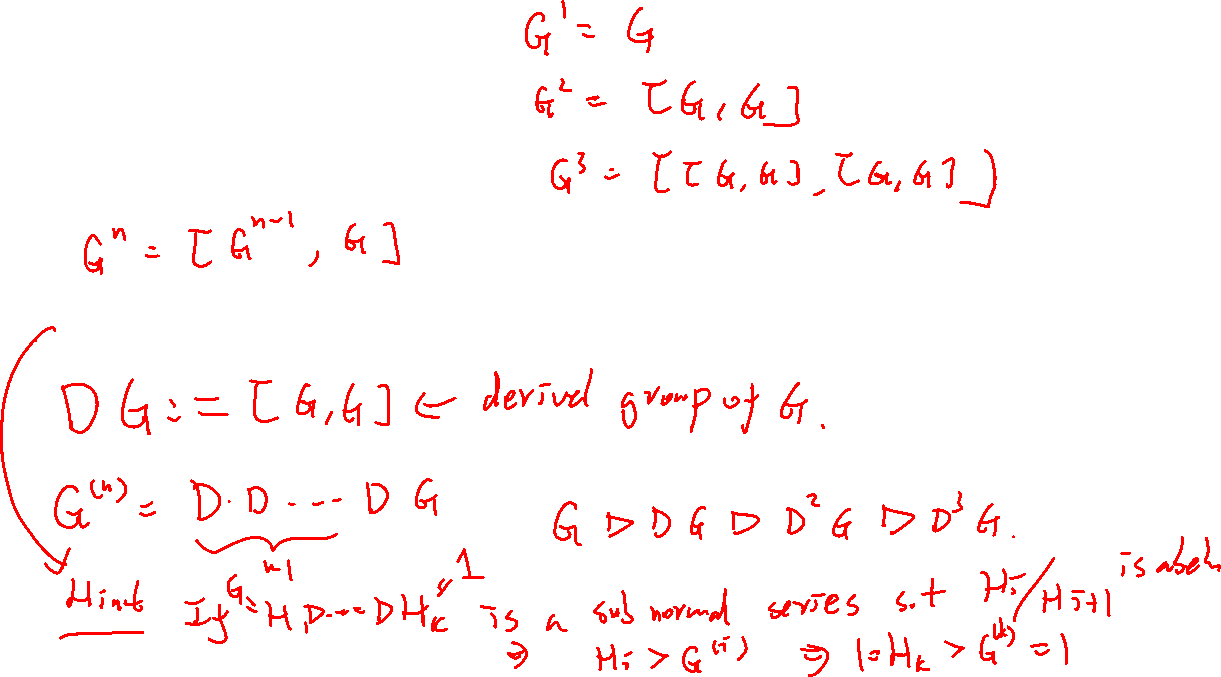 G¹ = G
G² = [G, G]
G³ = [[G, G], [G, G])
Gⁿ = [Gⁿ⁻¹, G]
DG := [G, G] ← derived group of G.
G⁽ⁿ⁾ = D·D···· D G
n-1
G ▷ DG ▷ D²G ▷ D³G.
Hint If G = H₁ ▷ ··· ▷ Hₖ = 1 is a subnormal series s.t Hᵢ/Hᵢ₊₁ is abel
⇒ Hᵢ > G⁽ⁱ⁾ ⇒ 1 = Hₖ > G⁽ᵏ⁾ = 1